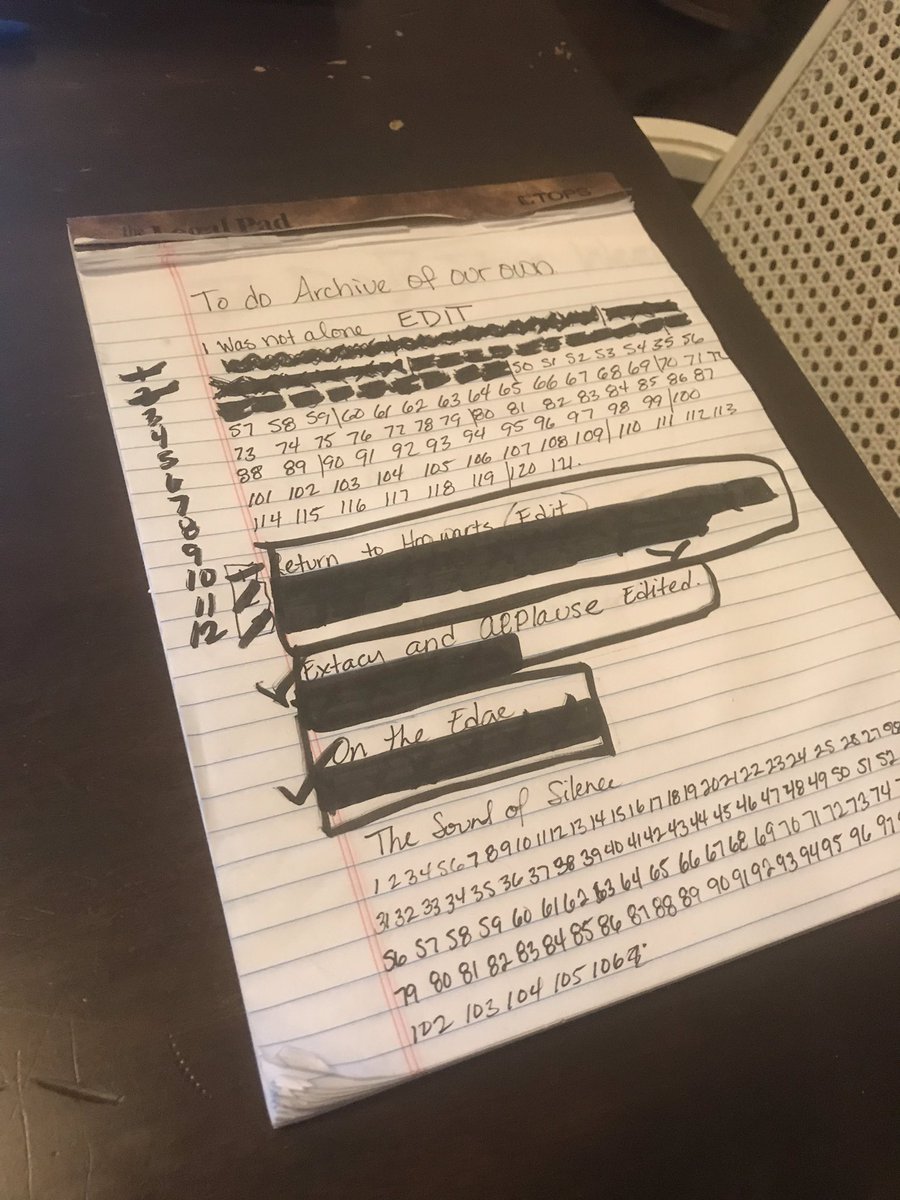 the Legal Pad TOPS
To do Archive of our own
I was not alone EDIT
50 51 52 53 54 35 56
57 58 59 60 61 62 63 64 65 66 67 68 69 70 71 72
73 74 75 76 77 78 79 80 81 82 83 84 85 86 87
88 89 90 91 92 93 94 95 96 97 98 99 100
101 102 103 104 105 106 107 108 109 110 111 112 113
114 115 116 117 118 119 120 121.
1
2
3
4
5
6
7
8
9
10
11
12
Return to Hogwarts Edit
Extacy and applause Edited.
On the Edge.
The Sound of Silence
1 2 3 4 5 6 7 8 9 10 11 12 13 14 15 16 17 18 19 20 21 22 23 24 25 26 27 28
31 32 33 34 35 36 37 38 39 40 41 42 43 44 45 46 47 48 49 50 51 52
56 57 58 59 60 61 62 63 64 65 66 67 68 69 70 71 72 73 74
79 80 81 82 83 84 85 86 87 88 89 90 91 92 93 94 95 96 97
102 103 104 105 106